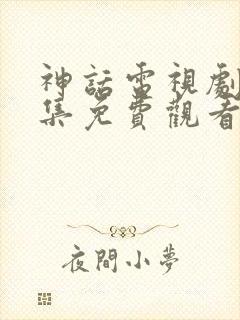 神話電視劇
集免費觀看
夜間小夢